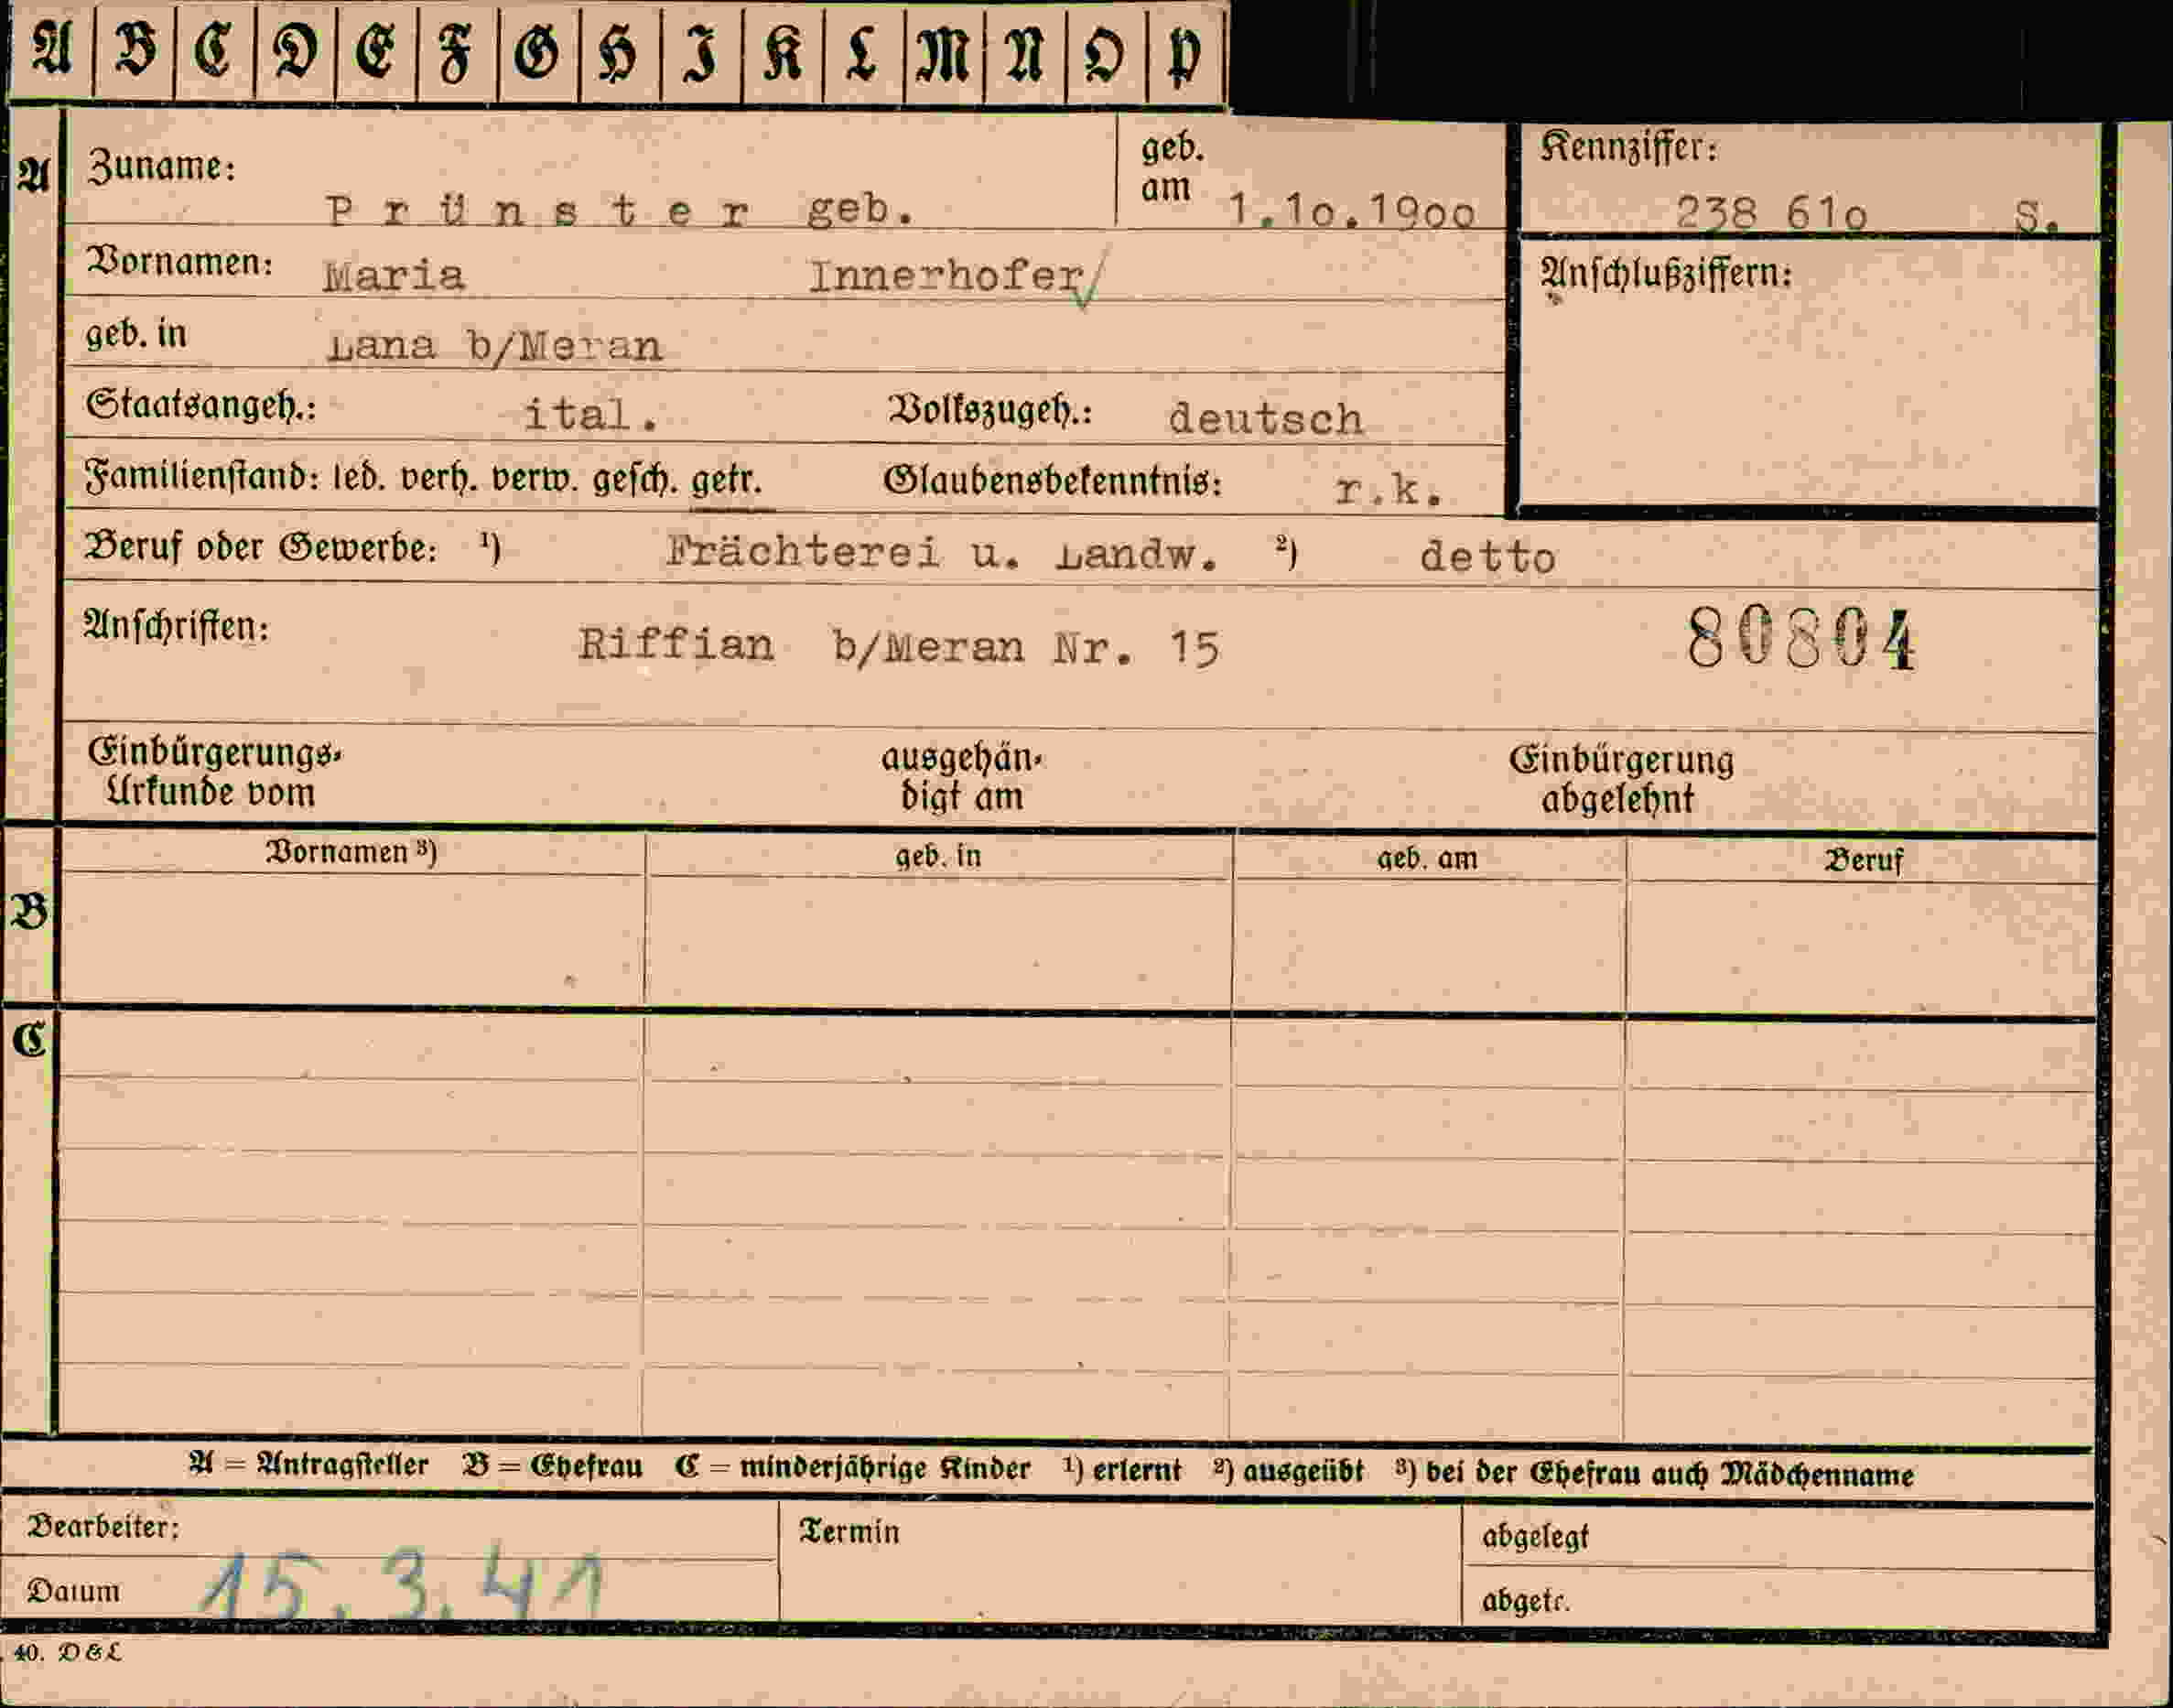 A B C D E F G H I K L M N O P
A Zuname: Prünster geb. geb. am 1.10.1900 Kennziffer: 238 610 S.
Vornamen: Maria Innerhofer Anschlußziffern:
geb. in Lana b/Meran
Staatsangeh.: ital. Volkszugeh.: deutsch
Familienstand: led. verh. verw. gesch. getr. Glaubensbekenntnis: r.k.
Beruf oder Gewerbe: ¹) Frächterei u. Landw. ²) detto
Anschriften: Riffian b/Meran Nr. 15 80804
Einbürgerungs- ausgehän- Einbürgerung
Urkunde vom digt am abgelehnt
Vornamen ³) geb. in geb. am Beruf
B
C
A = Antragsteller B = Ehefrau C = minderjährige Kinder ¹) erlernt ²) ausgeübt ³) bei der Ehefrau auch Mädchenname
Bearbeiter: Termin abgelegt
Datum 15.3.41 abgetr.
40. D&L